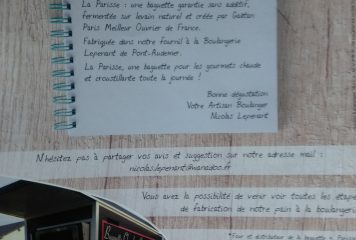 La Parisse : une baguette garantie sans additif,
fermentée sur levain naturel et créée par Gaëtan
Paris Meilleur Ouvrier de France.
Fabriquée dans notre fournil à la Boulangerie
Lepenant de Pont-Audemer.
La Parisse, une baguette pour les gourmets chaude
et croustillante toute la journée !
Bonne dégustation
Votre Artisan Boulanger
Nicolas Lepenant
N'hésitez pas à partager vos avis et suggestion sur notre adresse mail :
nicolas.lepenant@wanadoo.fr
Vous avez la possibilité de venir voir toutes les étapes
de fabrication de notre pain à la boulangerie
*Four et distributeur de la baguette